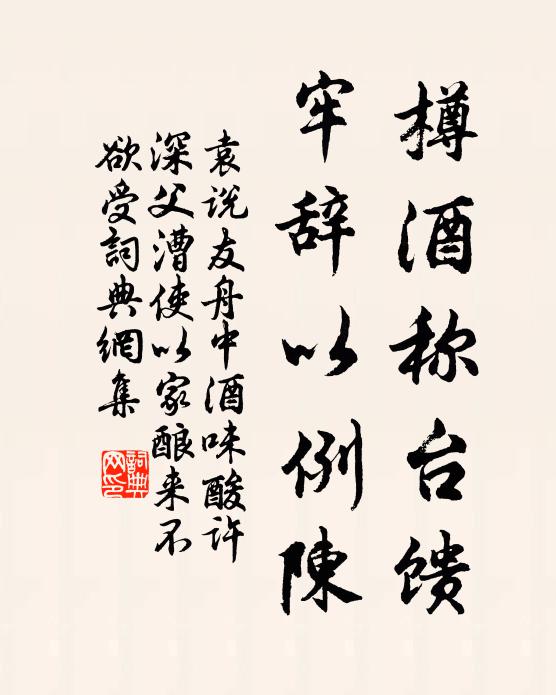 樽酒称台馈
牢辞以例陳
袁说友舟中酒味酸许
深父漕使以家酿来不
欲受詞典網集
詞典
网印